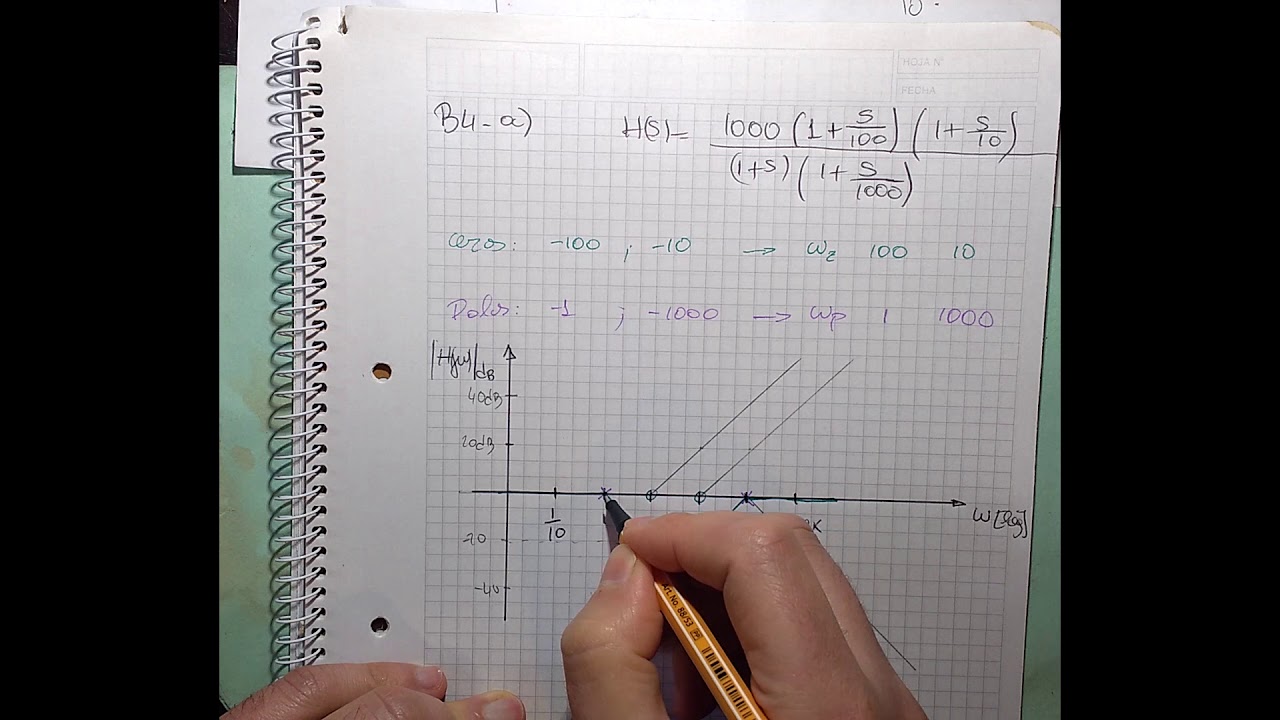 10
HOJA N°
FECHA
B4-a) H(s)= 1000 (1+s/100) (1+s/10) / (1+s) (1+s/1000)
Ceros: -100 ; -10 → ωz 100 10
Polos: -1 ; -1000 → ωp 1 1000
|H(jω)|dB
40dB
20dB
1/10
-20
-40
Art. No. 88/53